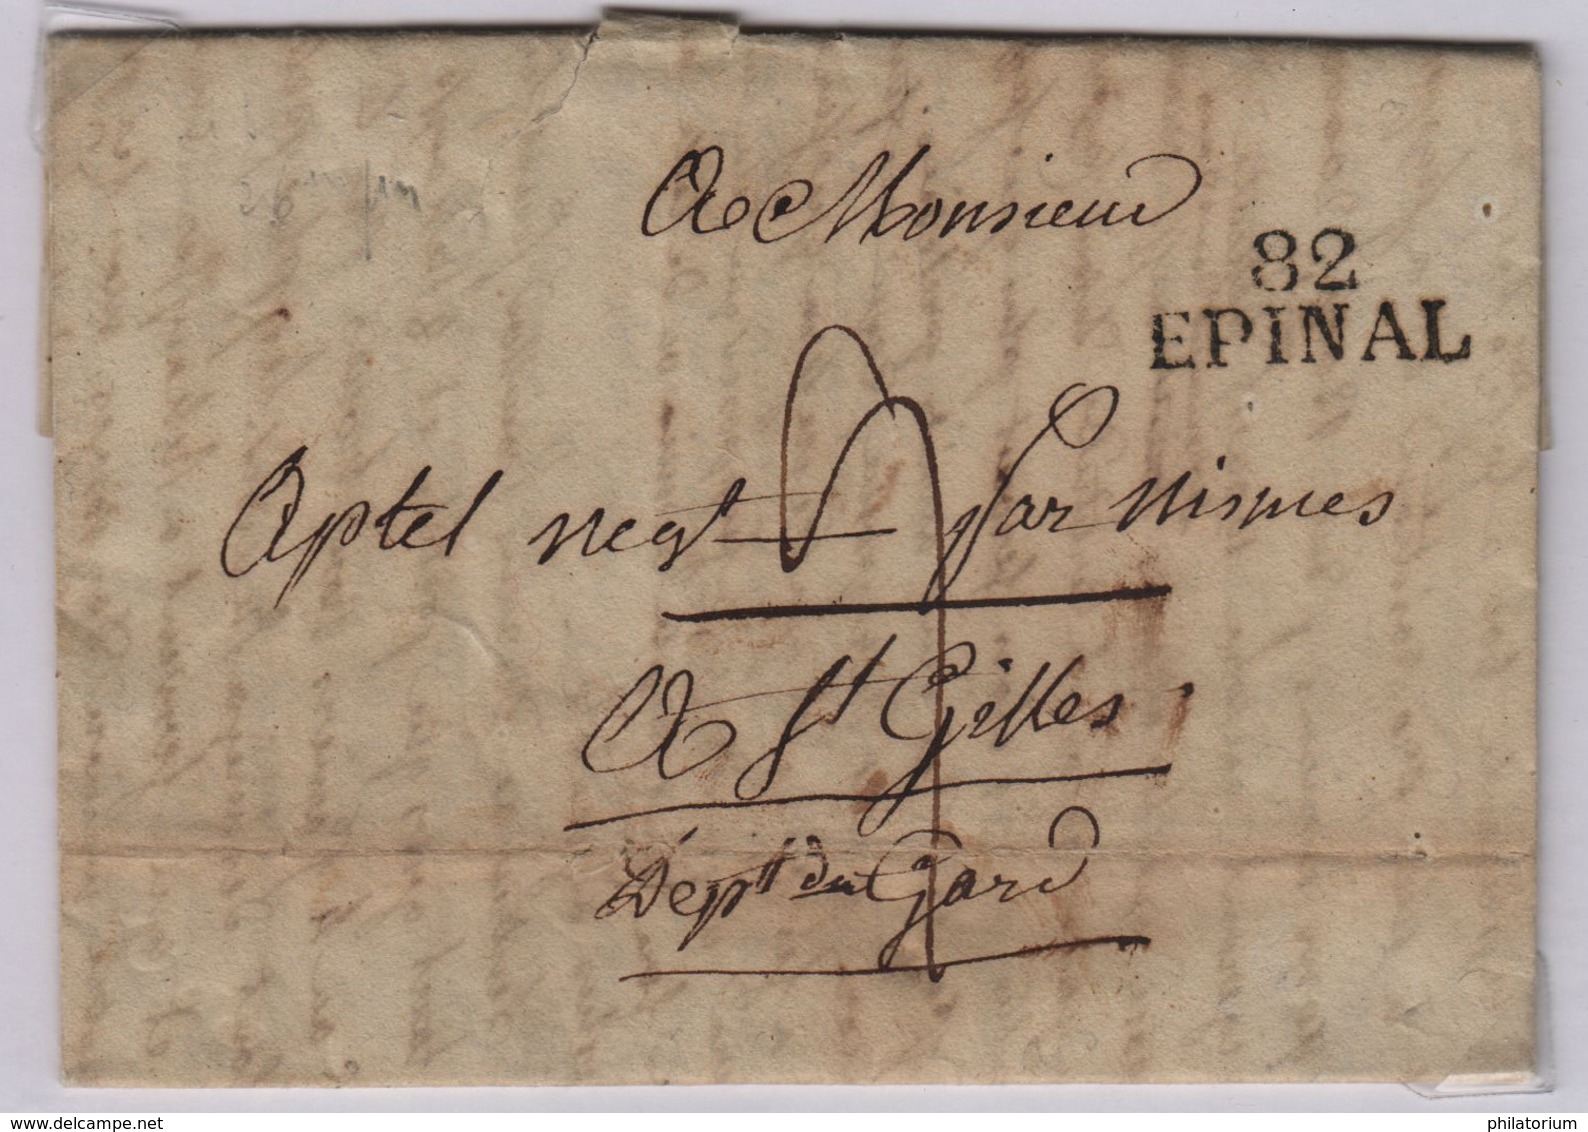 A Monsieur
82
EPINAL
Aptel negt par nismes
A St Gilles
Dépt du Gard
www.delcampe.net
philatorium